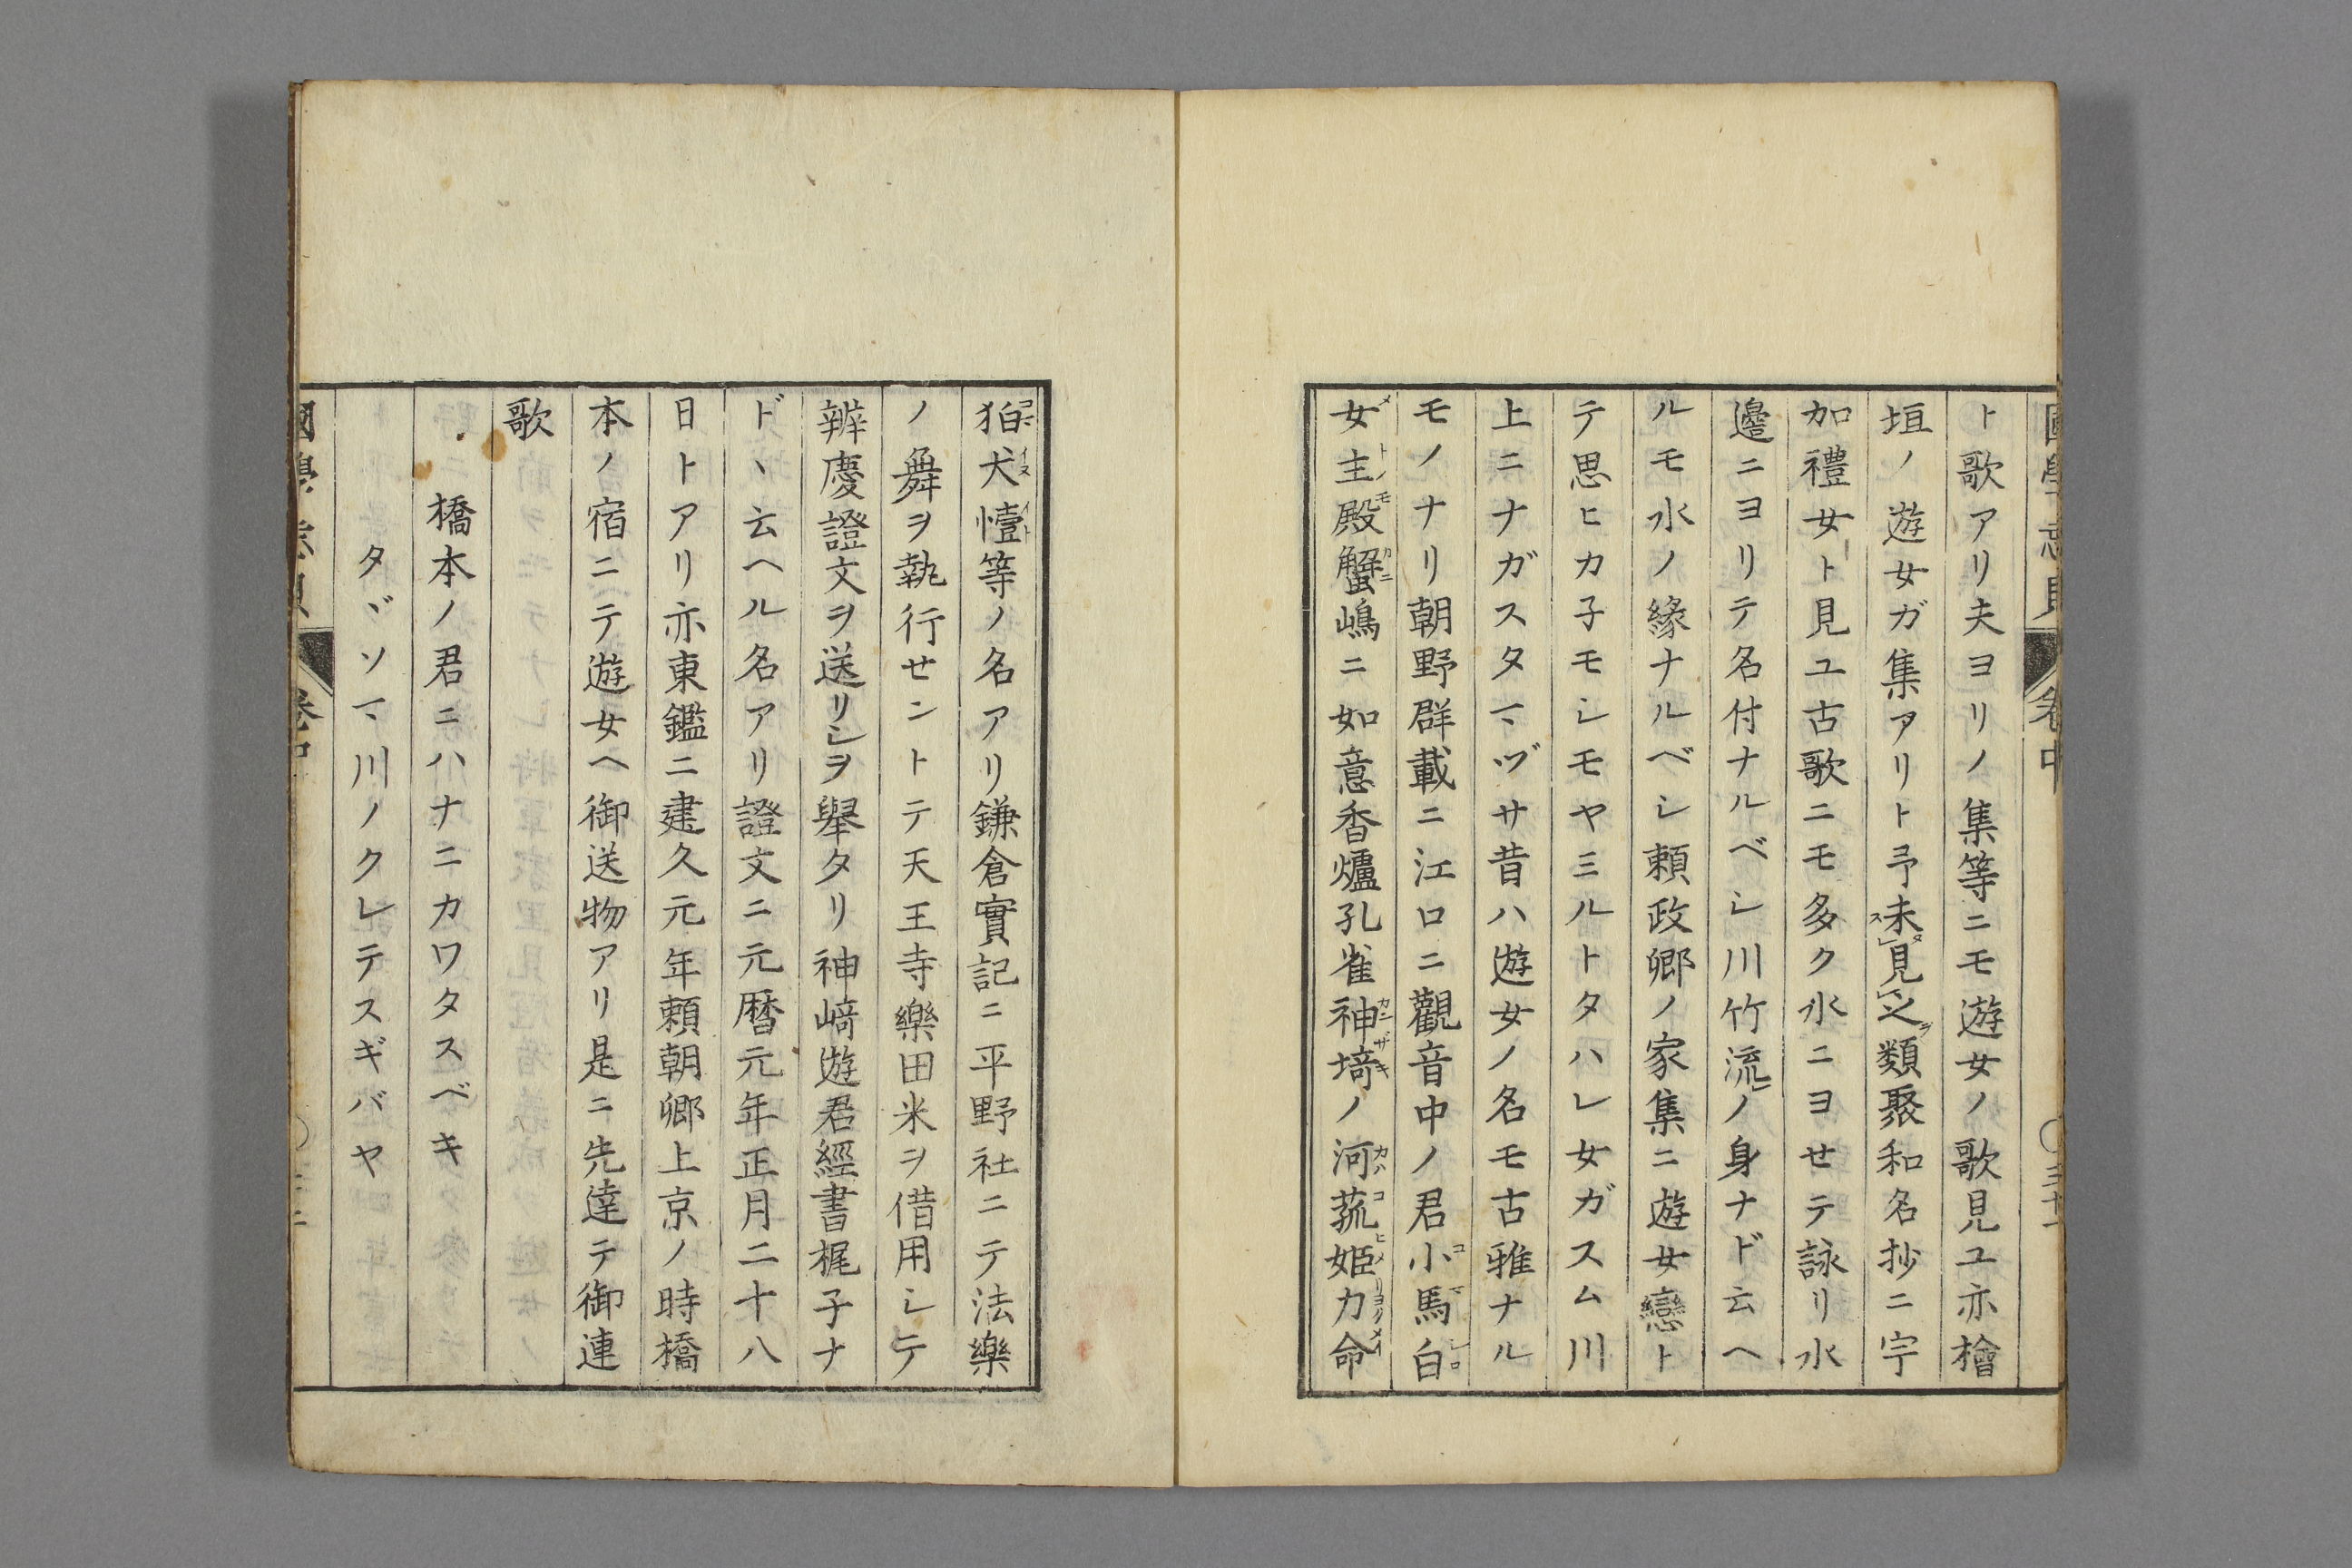 卷中
〇三十一
ト歌アリ夫ヨリノ集等ニモ遊女ノ歌見ユ亦檜
垣ノ遊女ガ集アリト予未見之類聚和名抄ニ宇
加禮女ト見ユ古歌ニモ多ク水ニヨセテ詠リ水
邊ニヨリテ名付ナルベシ川竹流ノ身ナドヽ云ヘ
ルモ水ノ緣ナルベシ頼政卿ノ家集ニ遊女戀ト
テ思ヒカ子モシモヤミルトタハレ女ガスム川
上ニナガスタマヅサ昔ハ遊女ノ名モ古雅ナル
モノナリ朝野群載ニ江口ニ觀音中ノ君小馬白
女主殿蟹嶋ニ如意香爐孔雀神埼ノ河菰姫力命
狛犬㦤等ノ名アリ鎌倉實記ニ平野社ニテ法樂
ノ舞ヲ執行セントテ天王寺樂田米ヲ借用シテ
辨慶證文ヲ送リシヲ舉タリ神﨑遊君經書梶子ナ
ドヽ云ヘル名アリ證文ニ元暦元年正月二十八
日トアリ亦東鑑ニ建久元年頼朝卿上京ノ時橋
本ノ宿ニテ遊女ヘ御送物アリ是ニ先達テ御連
歌
橋本ノ君ニハナニカワタスベキ
タヾソマ川ノクレテスギバヤ